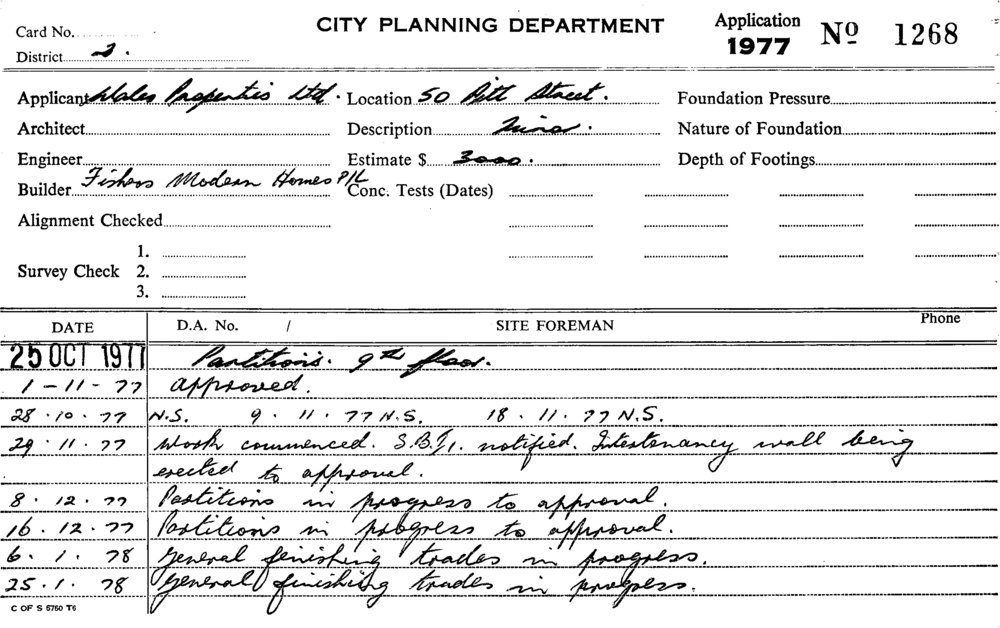 Card No.
CITY PLANNING DEPARTMENT
Application 1977 Nº 1268
District 2.
Applicant Wales Properties Ltd. Location 50 Pitt Street. Foundation Pressure
Architect Description Minor. Nature of Foundation
Engineer Estimate $ 3000. Depth of Footings
Builder Fishers Modern Homes P/L Conc. Tests (Dates)
Alignment Checked
1.
Survey Check 2.
3.
DATE D.A. No. / SITE FOREMAN Phone
25 OCT 1977 Partitions. 9th floor.
1-11-77 approved.
28.10.77 N.S. 9.11.77 N.S. 18.11.77 N.S.
29.11.77 Work commenced. notified. Intertenancy wall being
erected to approval.
8.12.77 Partitions in progress to approval.
16.12.77 Partitions in progress to approval.
6.1.78 General finishing trades in progress.
25.1.78 General finishing trades in progress.
C OF S 5750 T6